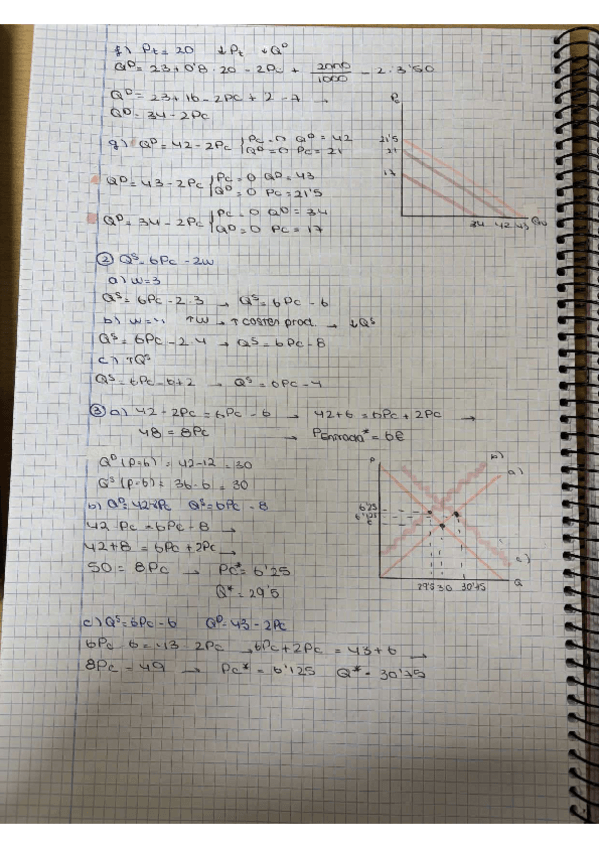 f) Pt = 20 ↓Pt ↓Qᴰ
Qᴰ = 23 + 0'8 · 20 - 2Pc + 2000/1000 - 2 · 3'50
Qᴰ = 23 + 16 - 2Pc + 2 - 7 →
Qᴰ = 34 - 2Pc
g) Qᴰ = 42 - 2Pc { Pc = 0 Qᴰ = 42
Qᴰ = 0 Pc = 21
Qᴰ = 43 - 2Pc { Pc = 0 Qᴰ = 43
Qᴰ = 0 Pc = 21'5
Qᴰ = 34 - 2Pc { Pc = 0 Qᴰ = 34
Qᴰ = 0 Pc = 17
21'5
21
13
34 42 43
② Qˢ = 6Pc - 2w
a) w = 3
Qˢ = 6Pc - 2 · 3 → Qˢ = 6Pc - 6
b) w = 4 ↑w → ↑ costes prod. → ↓Qˢ
Qˢ = 6Pc - 2 · 4 → Qˢ = 6Pc - 8
c) ↑Qˢ
Qˢ = 6Pc - 6 + 2 → Qˢ = 6Pc - 4
③ a) 42 - 2Pc = 6Pc - 6 → 42 + 6 = 6Pc + 2Pc →
48 = 8Pc → Pentrada* = 6€
Qᴰ (P=6) = 42 - 12 = 30
Qˢ (P=6) = 36 - 6 = 30
b) Qᴰ = 42 - 2Pc Qˢ = 6Pc - 8
42 - Pc = 6Pc - 8 →
42 + 8 = 6Pc + 2Pc →
50 = 8Pc → Pc* = 6'25
Q* = 29'5
P
b)
a)
6'25
6'125
6
c)
Q
29'5 30 30'75
c) Qˢ = 6Pc - 6 Qᴰ = 43 - 2Pc
6Pc - 6 = 43 - 2Pc → 6Pc + 2Pc = 43 + 6 →
8Pc = 49 → Pc* = 6'125 Q* = 30'75